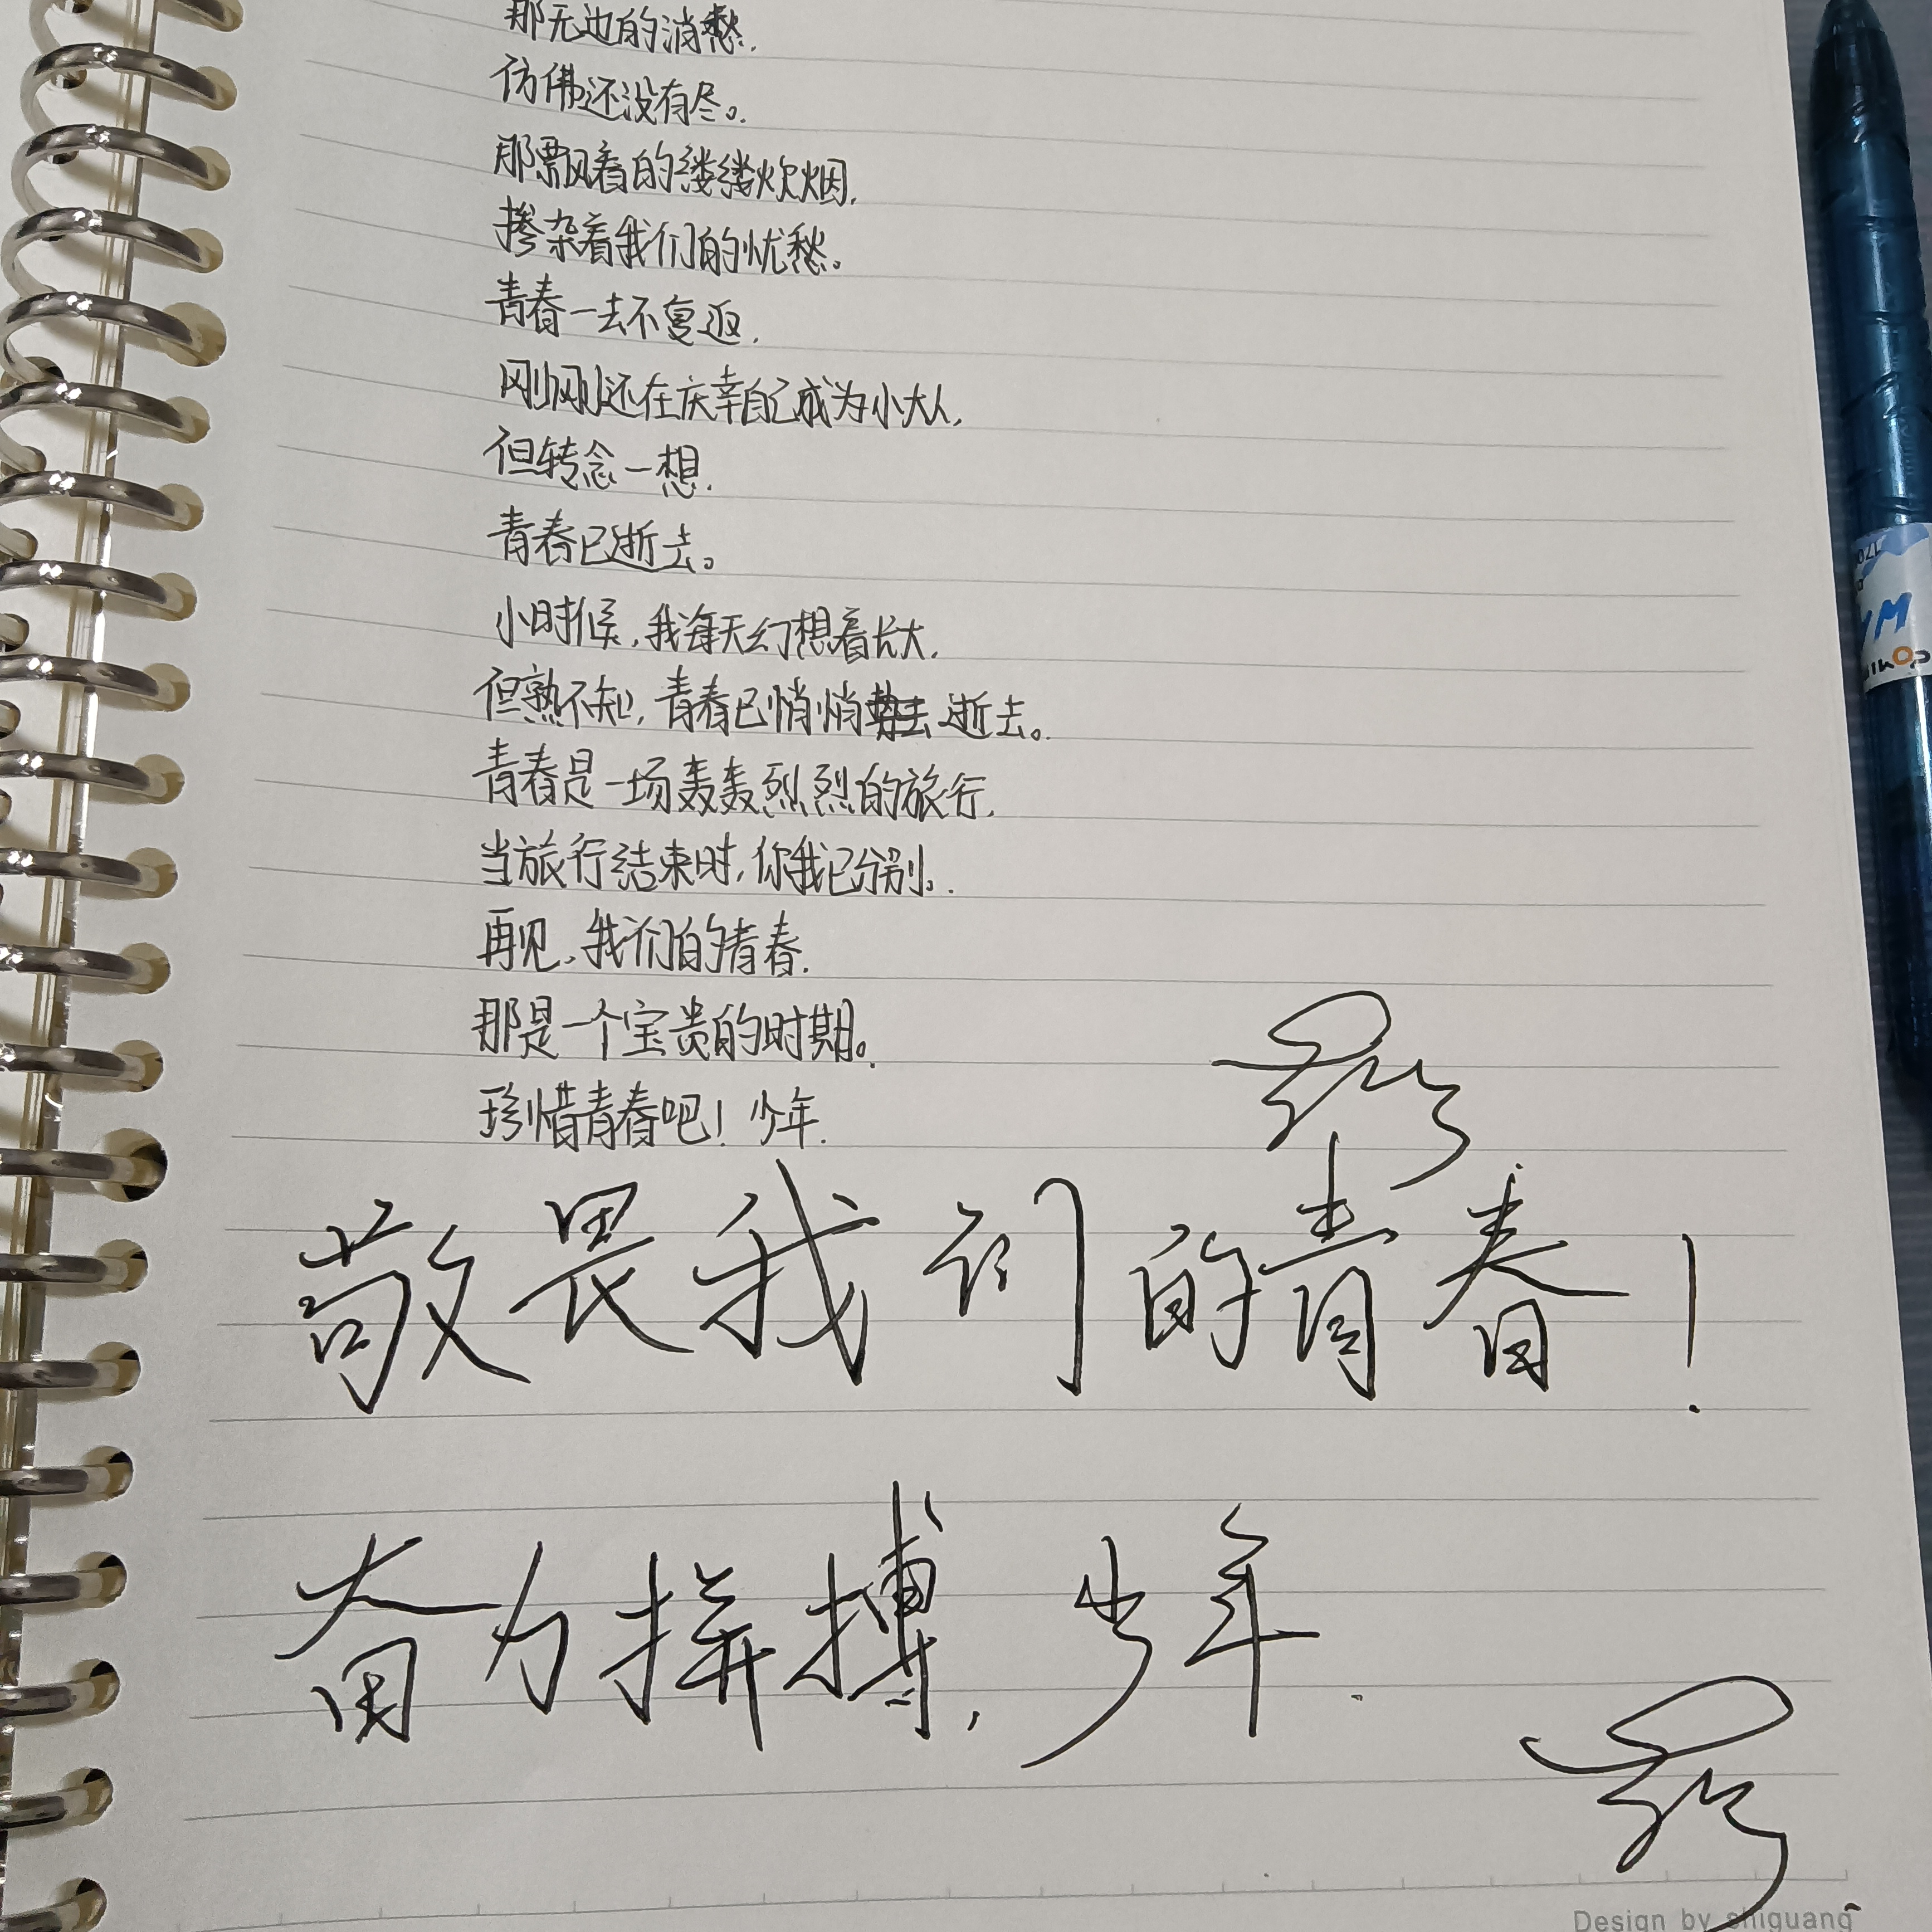 那无边的消愁,
仿佛还没有尽。
那飘着的缕缕炊烟,
掺杂着我们的忧愁。
青春一去不复返,
刚刚还在庆幸自己成为小大人,
但转念一想,
青春已逝去。
小时候,我每天幻想着长大,
但熟不知,青春已悄悄逝去。
青春是一场轰轰烈烈的旅行,
当旅行结束时,你我已分别。
再见,我们的青春,
那是一个宝贵的时期。
珍惜青春吧!少年.
敬畏我们的青春!
奋力拼搏,少年.
Design by shiguang